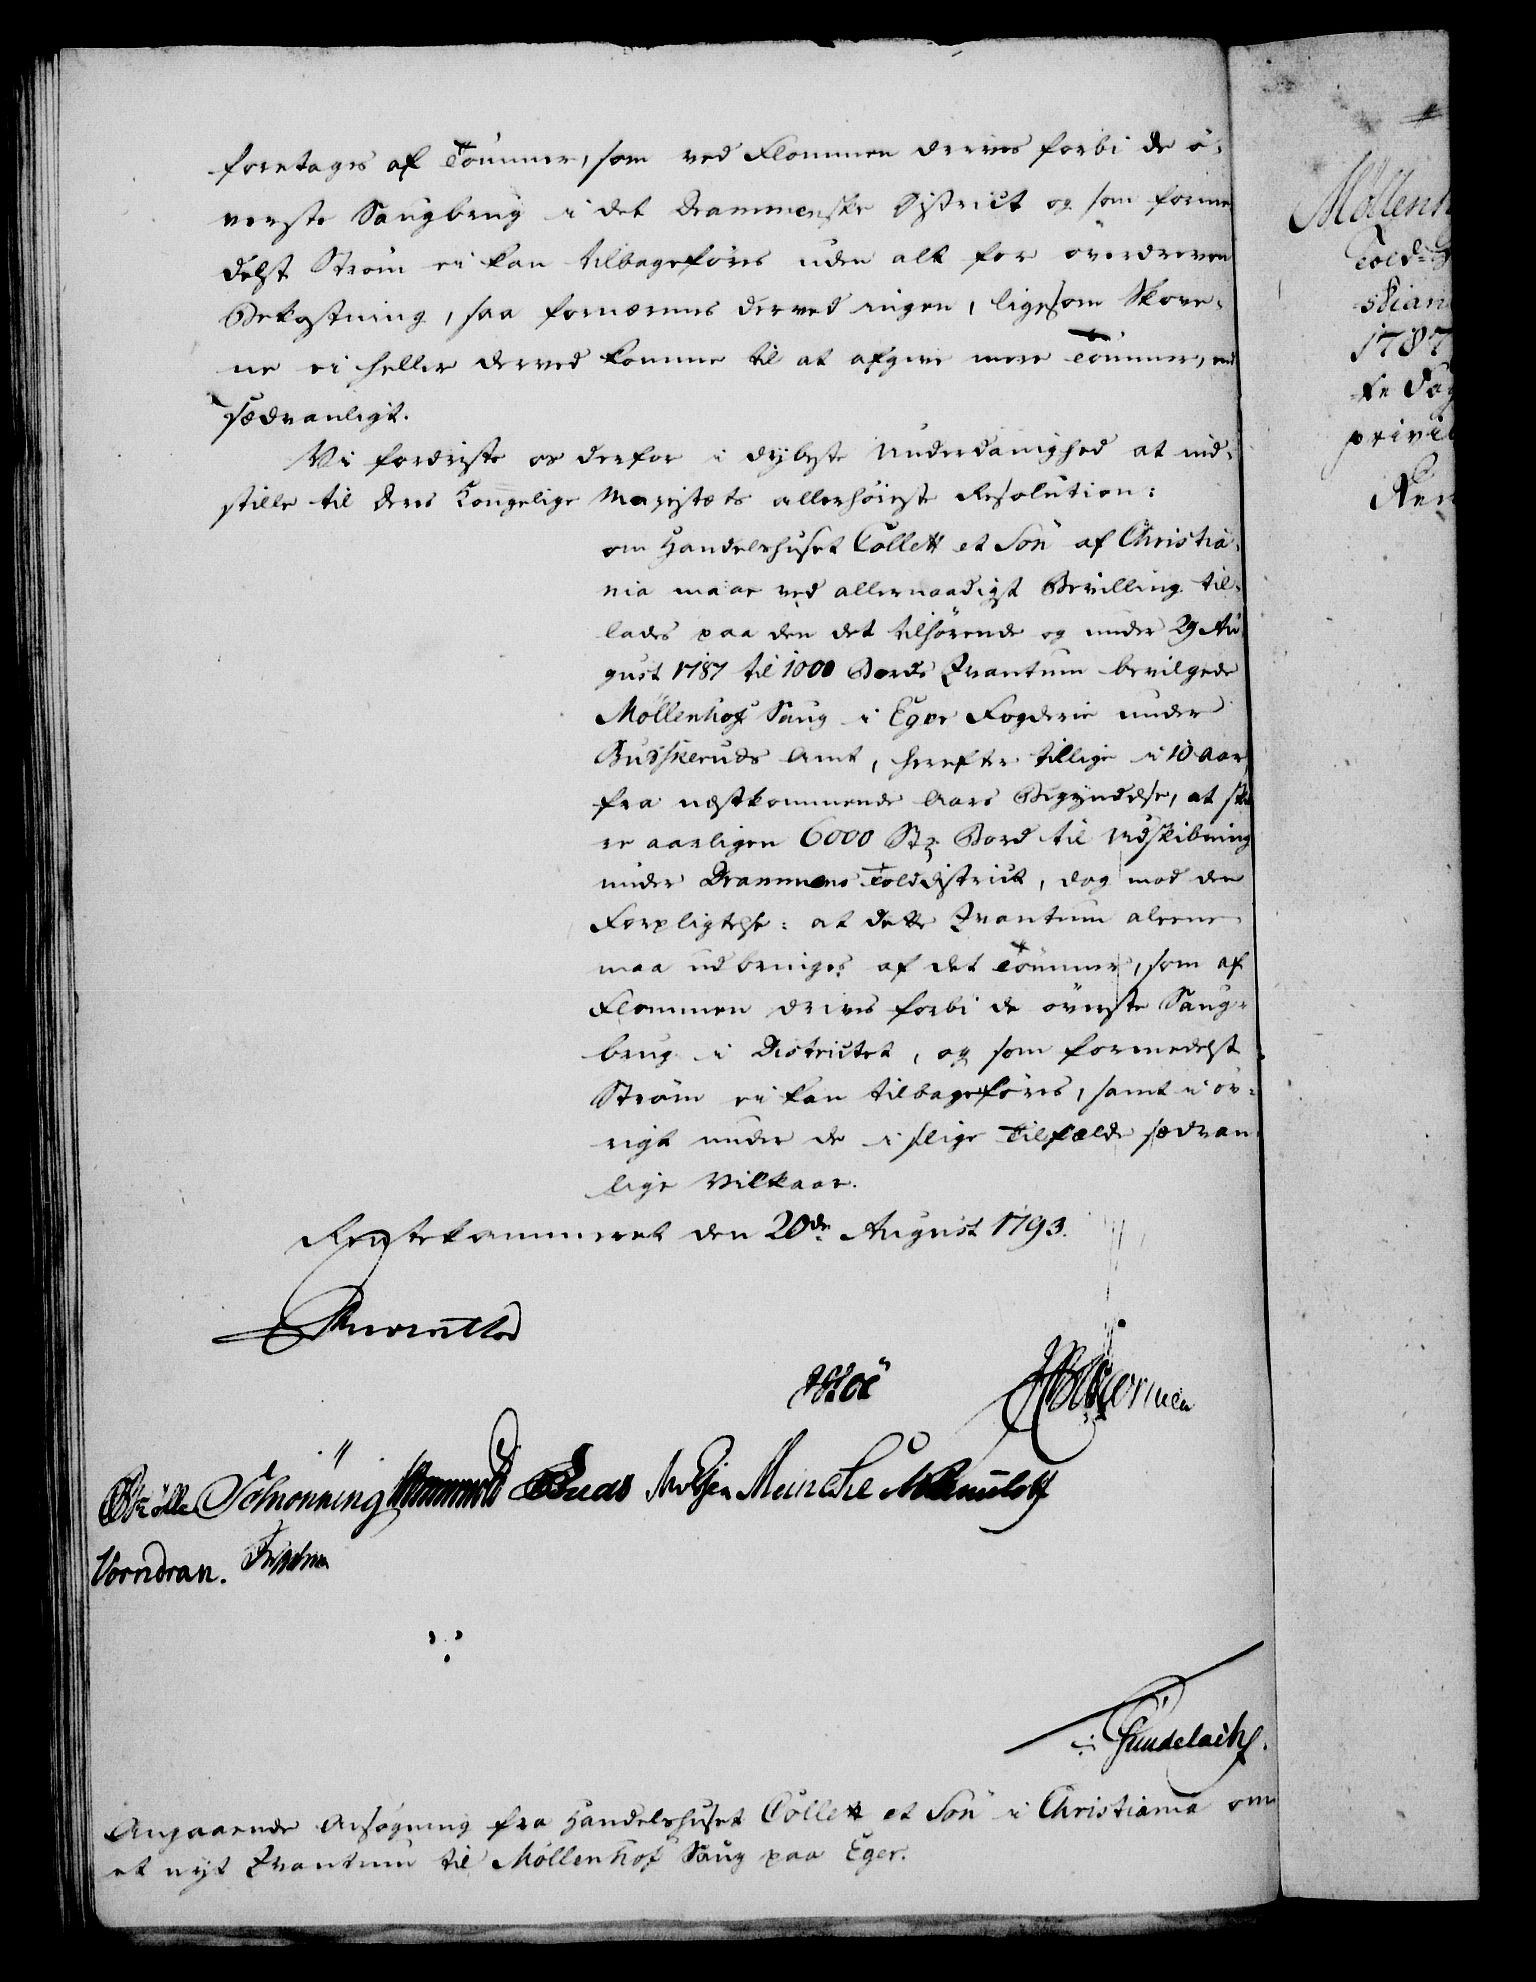 foretages af Tömmer, som ved Flommen drives forbi de ö-
verste Saugbrug i det Drammenske District og som forme
delst Ström ei kan tilbageföres uden alt for överdreven
Bekostning, saa fornærmes derved ingen, ligesom Skove-
ne ei heller derved komme til at afgive mere Tömmer, end
sædvanligt.
Vi fordriste os derfor i dybeste Underdanighed at ind-
stille til Deres Kongelige Majestæts allerhöieste Resolution:
om Handelshuset Collett et Sön af Christia-
nia maae ved allernaadigst Bevilling til-
lades paa den det tilhörende og under 29 Au
gust 1787 til 1000 Bords Qvantum bevilgede
Möllenhof Saug i Eger Fogderie under
Budskeruds Amt, herefter tillige i 10 Aar,
fra næstkommende Aars Begyndelse, at skiæ
re aarligen 6000 Stz Bord til Udskibning
under Drammens Tolddistrict, dog mod den
Forpligtelse: at dette Qvantum aleene
maa udbringes af det Tömmer, som af
Flommen drives forbi de överste Saug-
brug i Districtet, og som formedelst
Ström ei kan tilbageföres, samt i öv-
rigt under de i slige Tilfælde sædvan
lige Vilkaar.
Rentekammeret den 20de August 1793.
Reventlow
Schönning Meincke
Vorndran.
Gündelach.
Angaaende Ansögning fra Handelshuset Collett et Sön i Christiania om
et nyt Qvantum til Möllenhof Saug paa Eger.
Möllenh
Told
stian
1787
privil
Ren